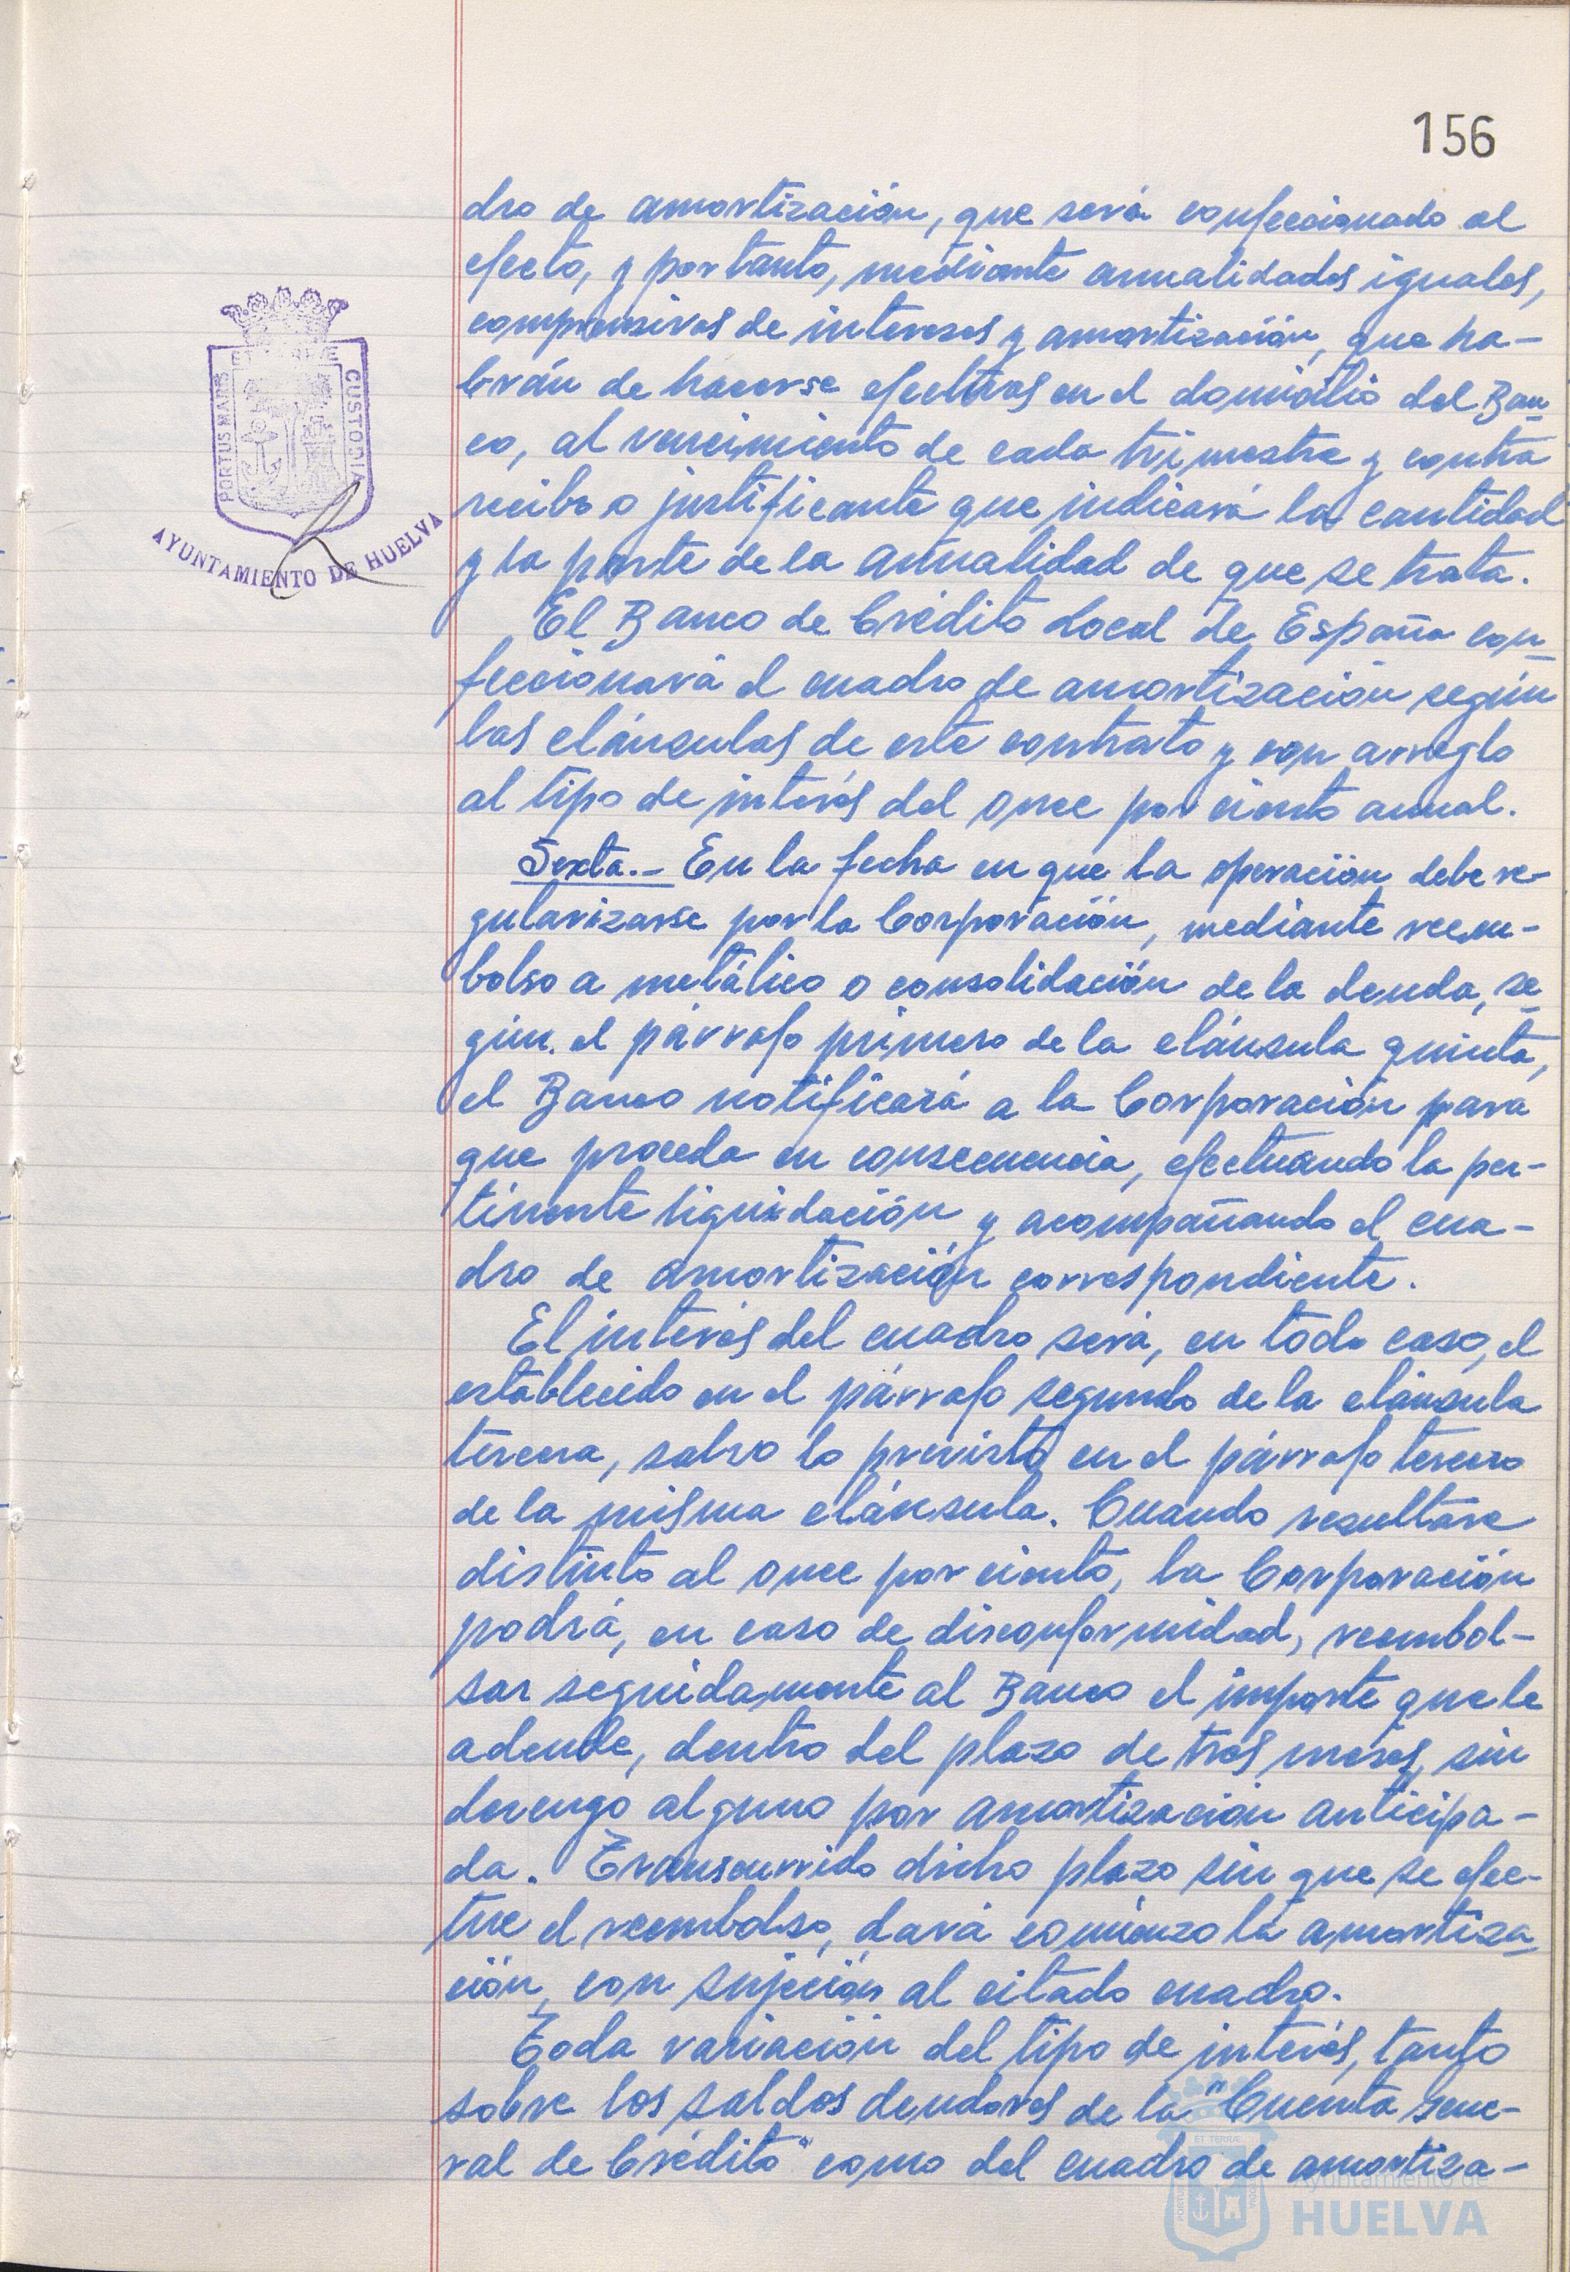 156
dro de amortización, que será confeccionado al
efecto, y por tanto, mediante anualidades iguales,
comprensivas de intereses y amortización, que ha-
brán de hacerse efectivas en el domicilio del Ban
co, al vencimiento de cada trimestre y contra
recibo o justificante que indicará la cantidad
y la parte de la anualidad de que se trata.
El Banco de Crédito Local de España con
feccionará el cuadro de amortización según
las cláusulas de este contrato y con arreglo
al tipo de interés del once por ciento anual.
Sexta.- En la fecha en que la operación debe re-
gularizarse por la Corporación, mediante reem-
bolso a metálico o consolidación de la deuda, se
gún el párrafo primero de la cláusula quinta,
el Banco notificará a la Corporación para
que proceda en consecuencia, efectuando la per-
tinente liquidación y acompañando el cua-
dro de amortización correspondiente.
El interés del cuadro será, en todo caso, el
establecido en el párrafo segundo de la cláusula
tercera, salvo lo previsto en el párrafo tercero
de la misma cláusula. Cuando resultare
distinto al once por ciento, la Corporación
podrá, en caso de disconformidad, reembol-
sar seguidamente al Banco el importe que le
adeude, dentro del plazo de tres meses, sin
devengo alguno por amortización anticipa-
da. Transcurrido dicho plazo sin que se efec-
tue el reembolso, dará comienzo la amortiza
ción, con sujeción al citado cuadro.
Toda variación del tipo de interés, tanto
sobre los saldos deudores de la "Cuenta gene-
ral de Crédito" como del cuadro de amortiza-
PORTUS MARIS
ET TERRAE
CUSTODIA
AYUNTAMIENTO DE HUELVA
ET TERRAE
Ayuntamiento de
HUELVA